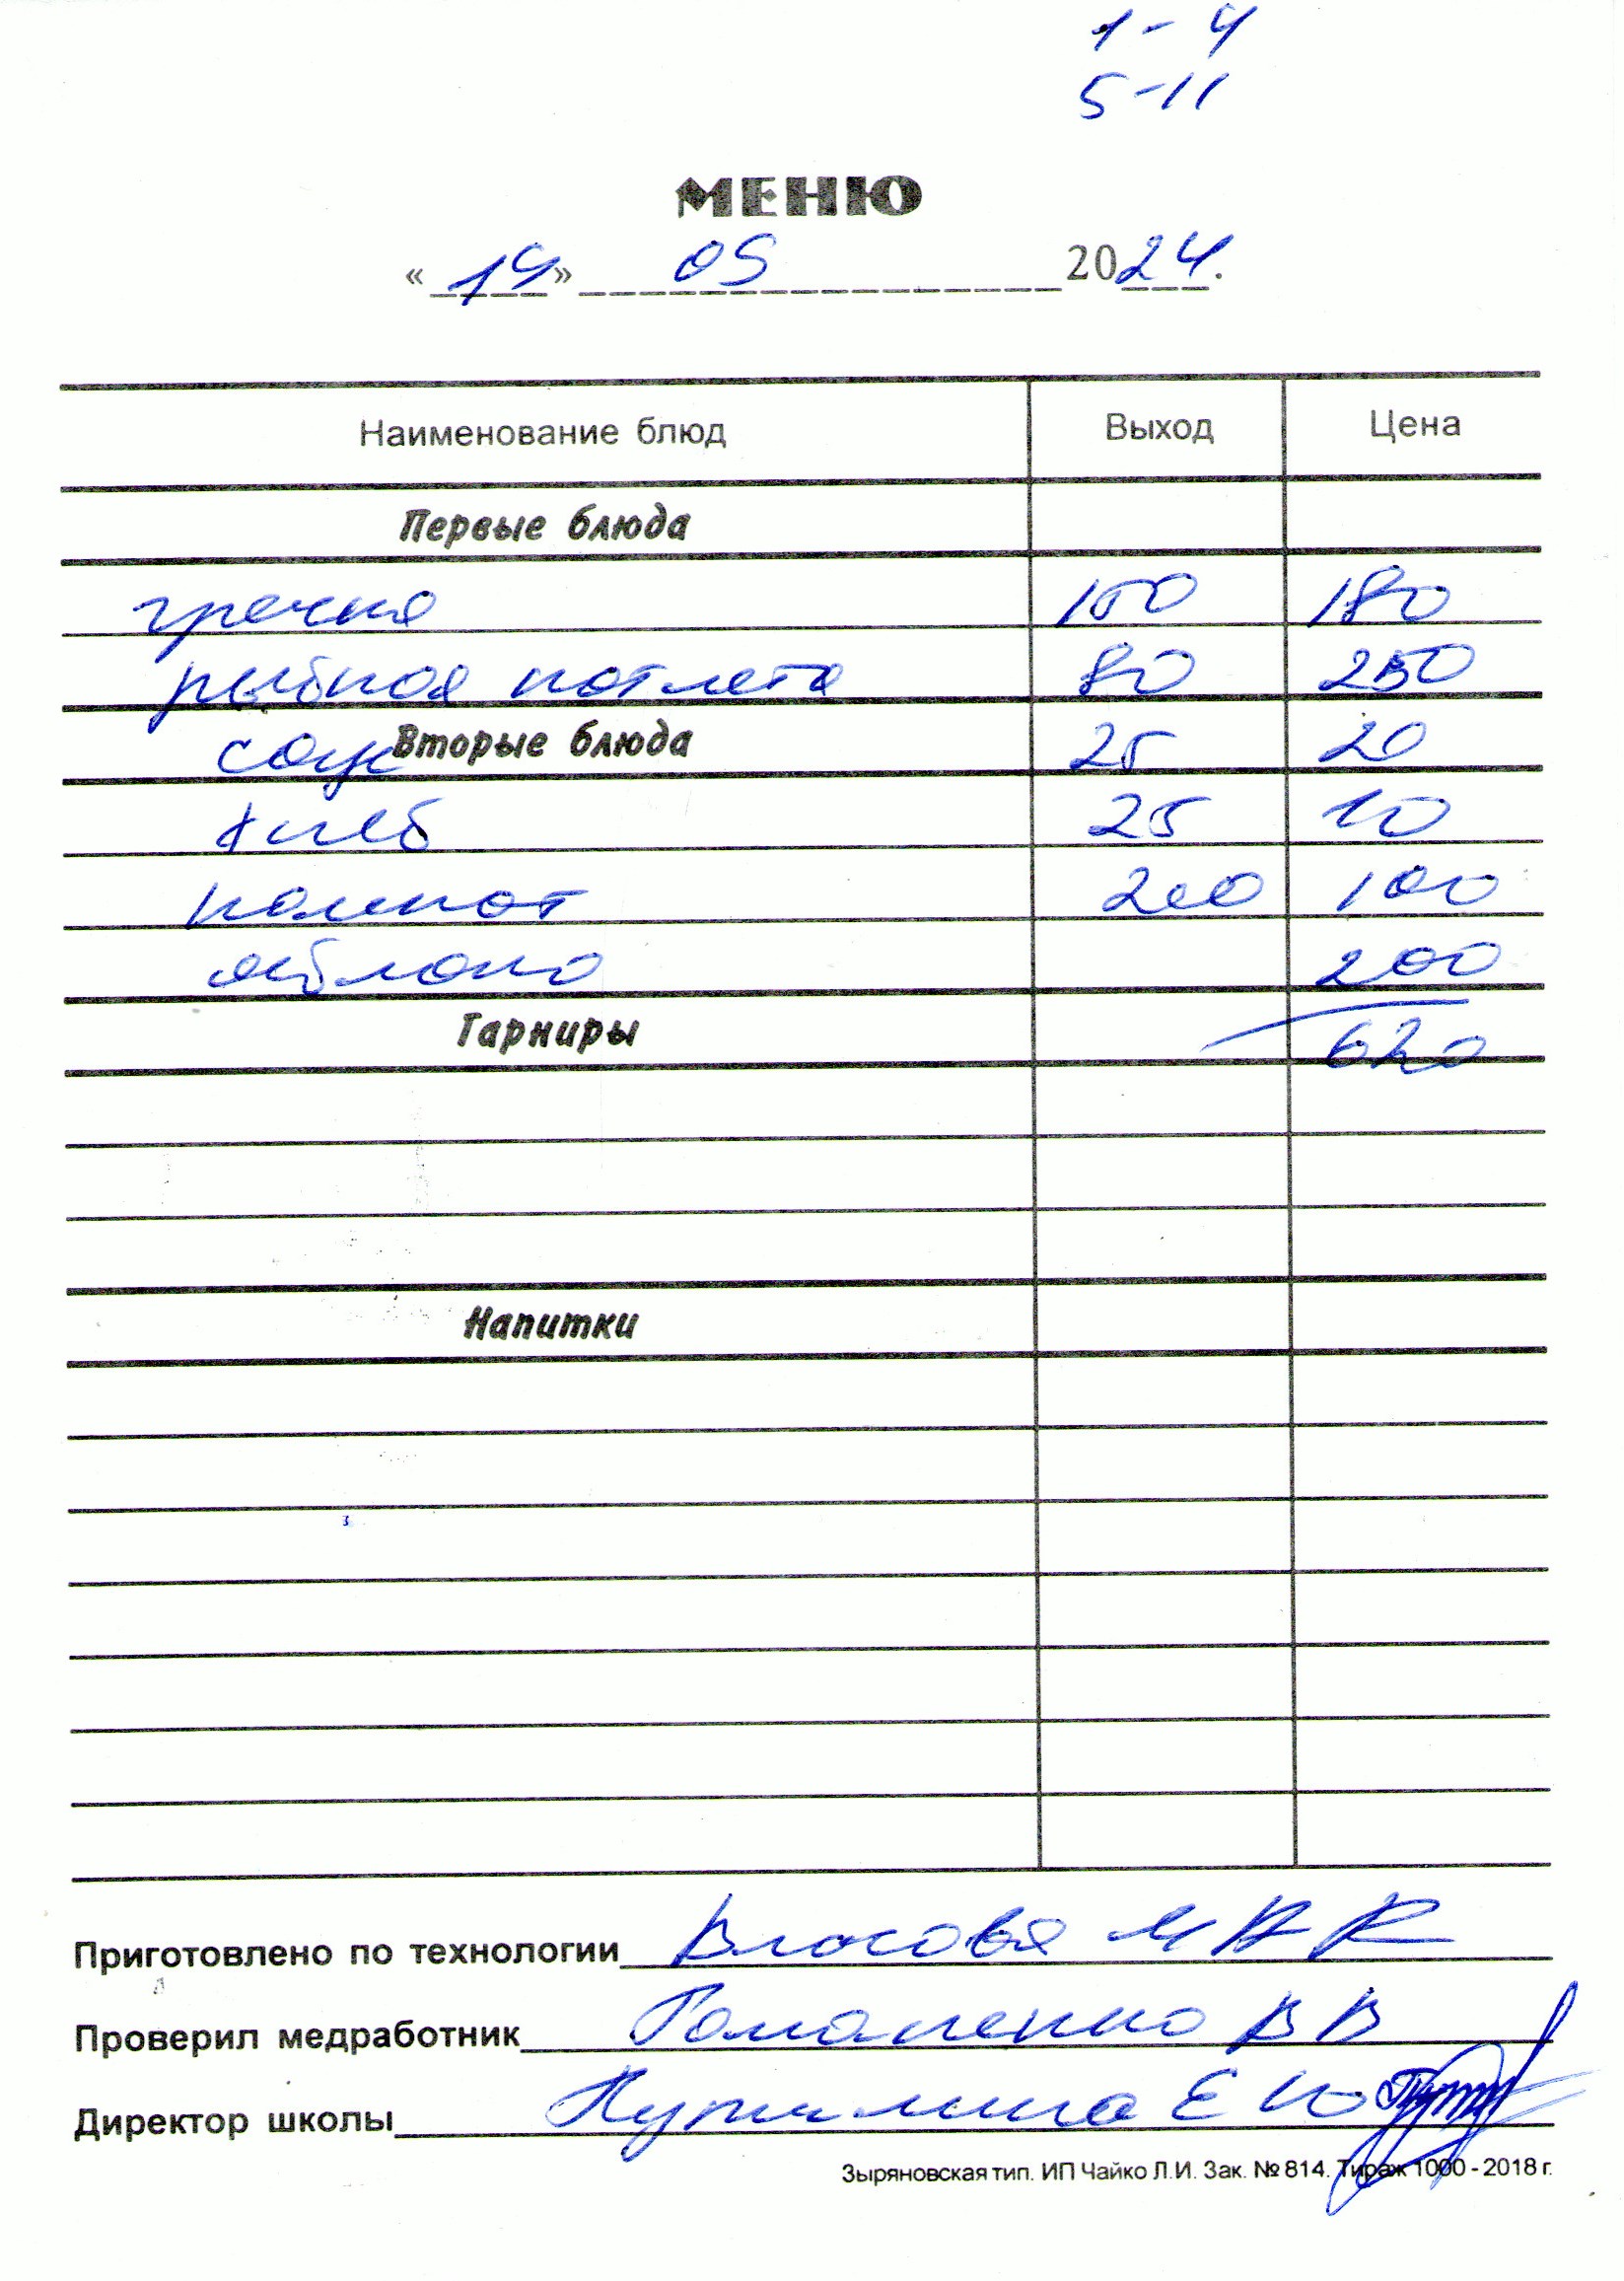 1 - 4
5 - 11
МЕНЮ
« 14 » 05 2024.
Наименование блюд Выход Цена
Первые блюда
гречка 150 180
рыбная котлета 80 250
соус Вторые блюда 25 20
хлеб 25 10
компот 200 100
яблоко 200
Гарниры 620
Напитки
Приготовлено по технологии Власова
Проверил медработник В В
Директор школы Е Ю
Зыряновская тип. ИП Чайко Л.И. Зак. № 814. Тираж 1000 - 2018 г.